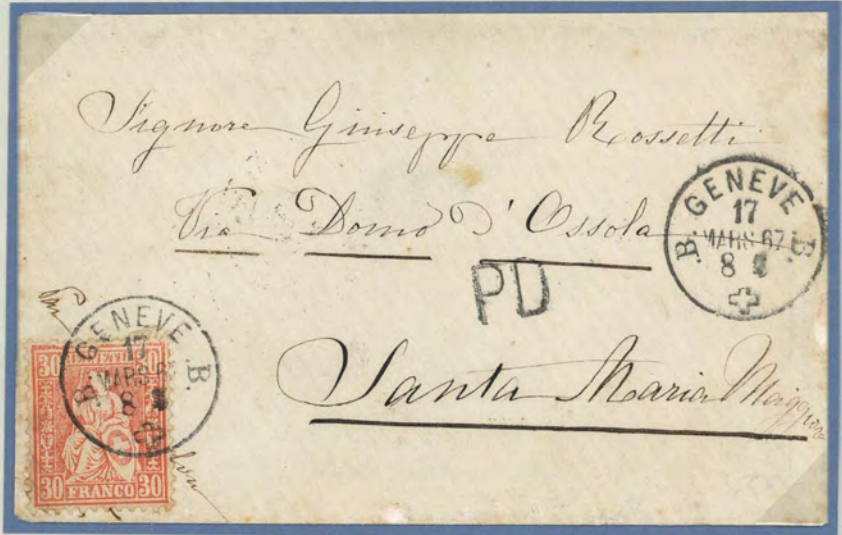 Signore Giuseppe Rossetti
Via Domo D'Ossola
B. GENEVE B.
17
MARS 67
8
PD
Santa Maria Maggiore
B. GENEVE B.
17
MARS 6
8
30 30
30 FRANCO 30